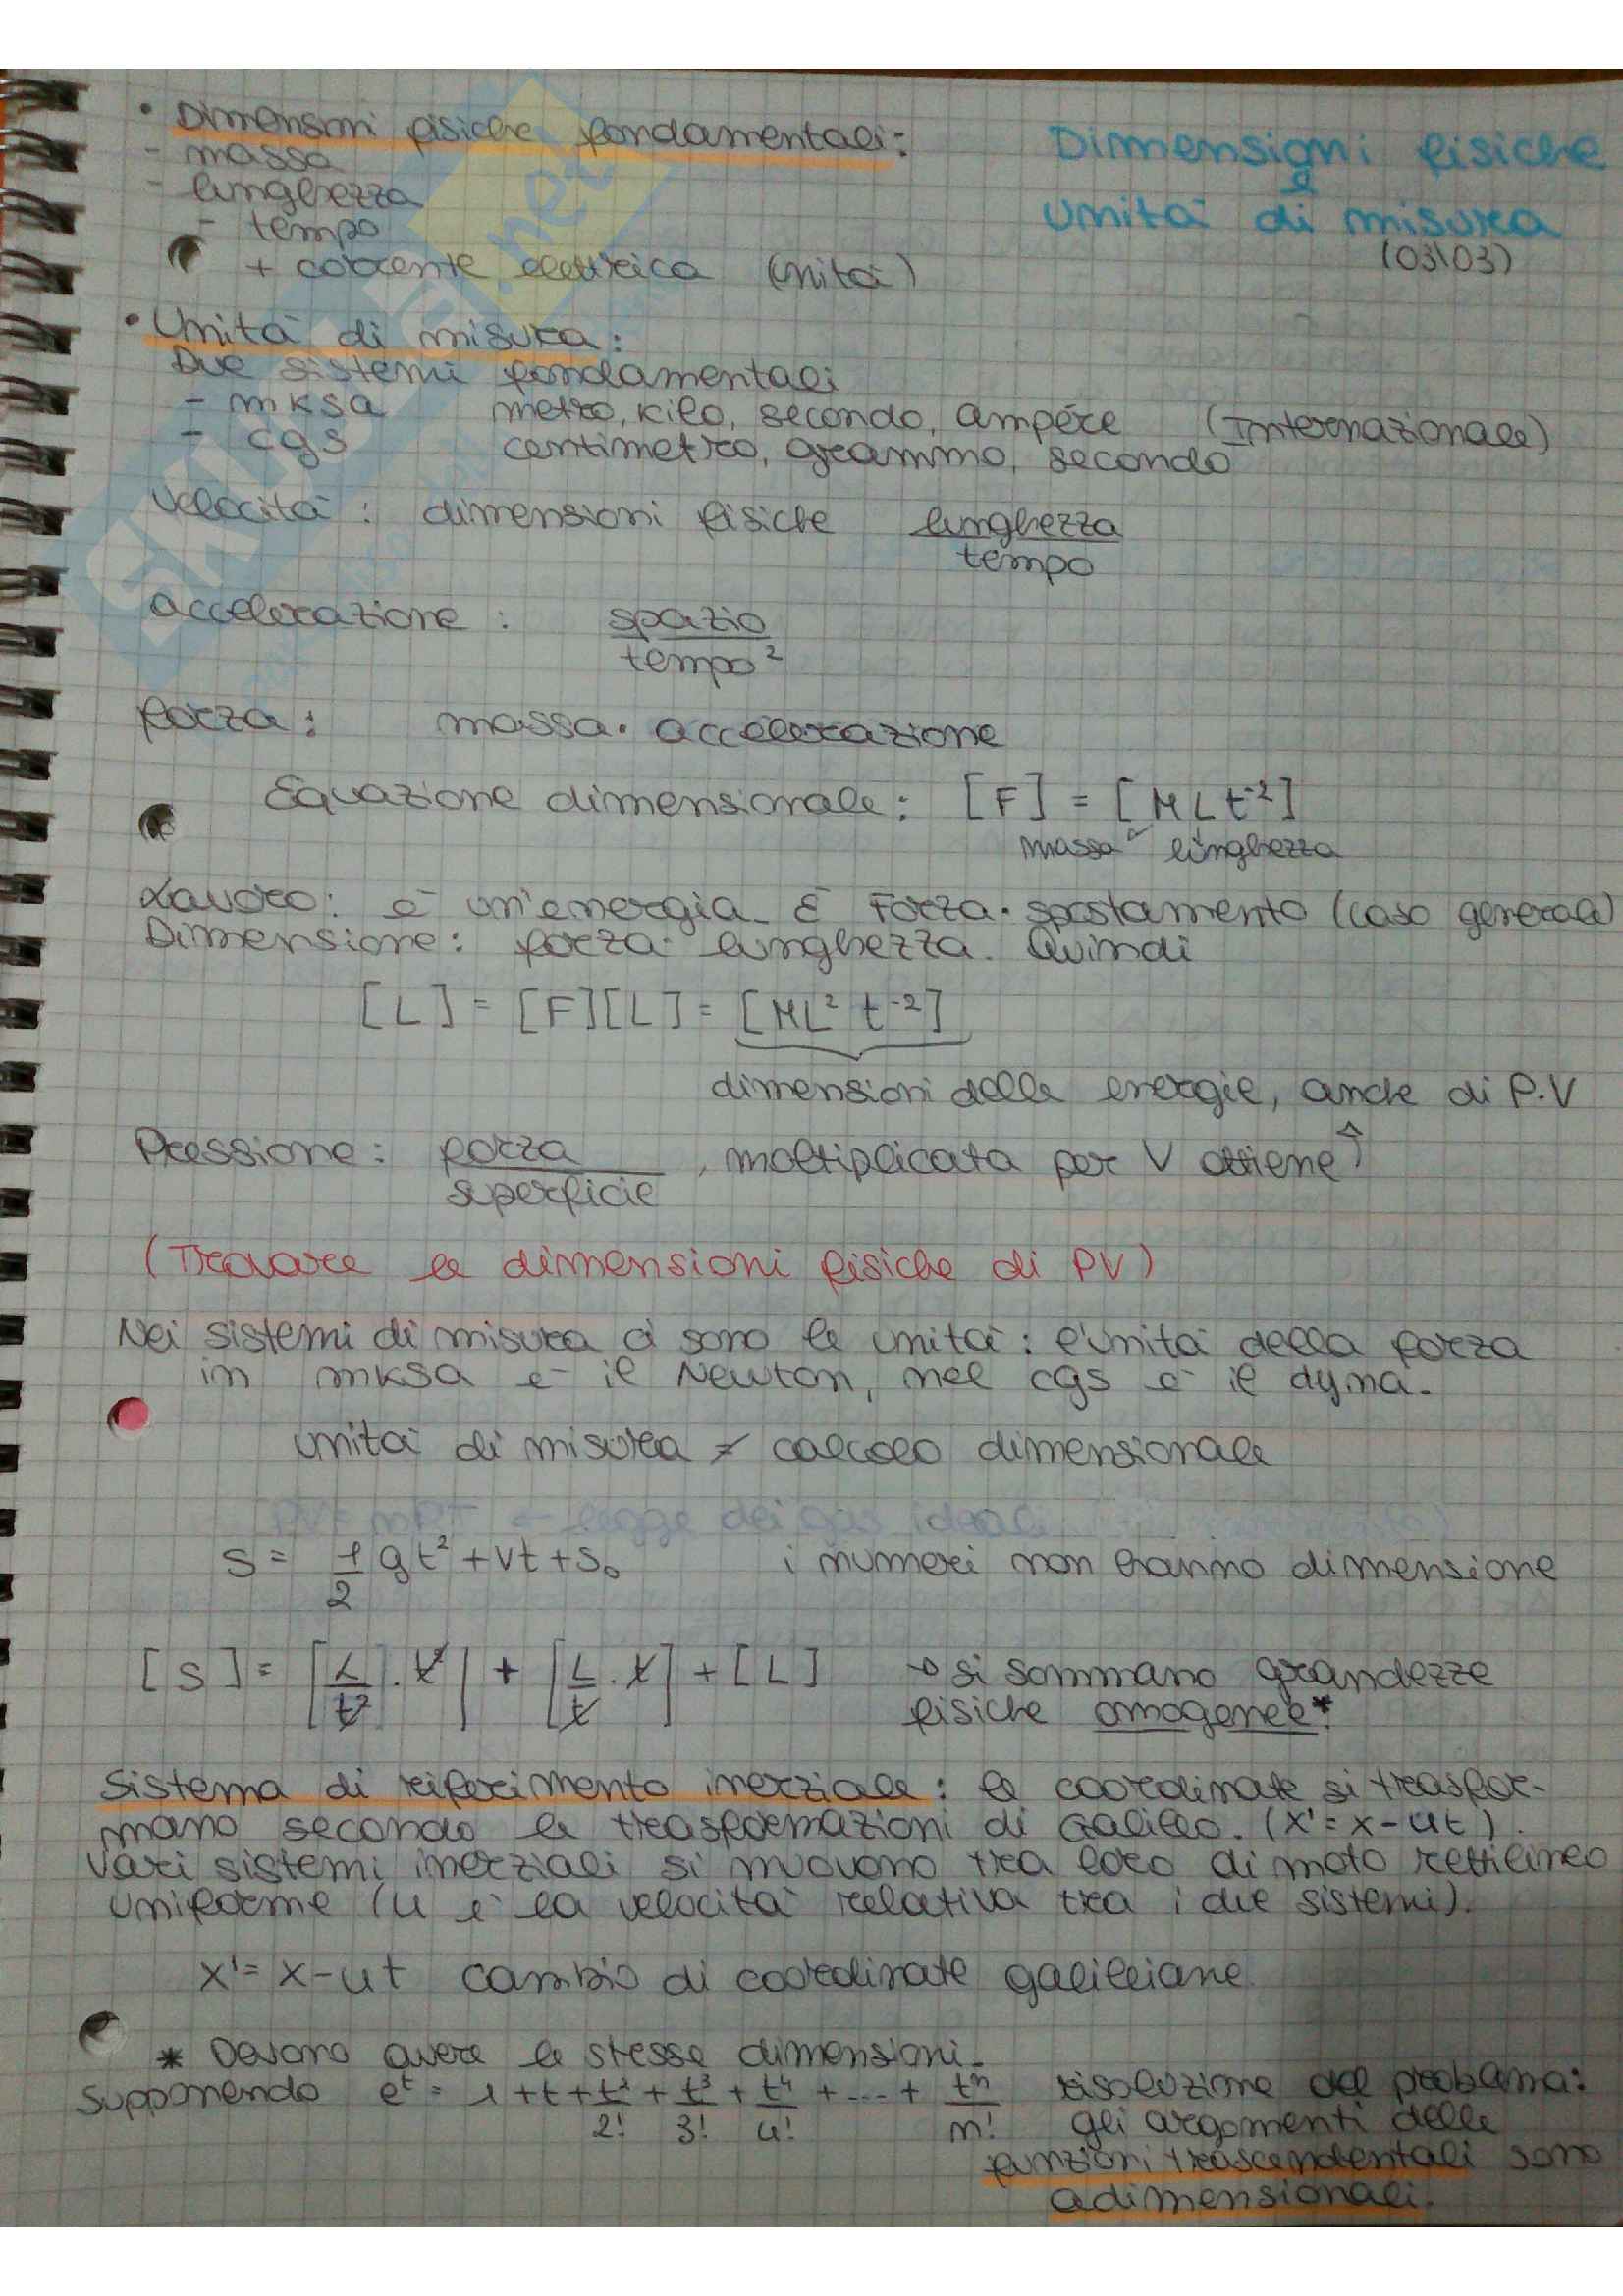 • Dimensioni fisiche fondamentali:
- massa
- lunghezza
- tempo
+ corrente elettrica (unità)
Dimensioni fisiche
e
unità di misura
(03\03)
• Unità di misura:
Due sistemi fondamentali
- mksa metro, kilo, secondo, ampére (Internazionale)
- cgs centimetro, grammo, secondo
Velocità: dimensioni fisiche lunghezza/tempo
accelerazione: spazio/tempo²
forza: massa · accelerazione
Equazione dimensionale: [F] = [M L t⁻²]
massa lunghezza
Lavoro: è un'energia. È Forza · spostamento (caso generale)
Dimensione: forza · lunghezza. Quindi
[L] = [F][L] = [ML² t⁻²]
dimensioni delle energie, anche di P.V
Pressione: forza/superficie, moltiplicata per V ottiene ↑
(Trovare le dimensioni fisiche di PV)
Nei sistemi di misura ci sono le unità: l'unità della forza
in mksa è il Newton, nel cgs è il dyna.
unità di misura ≠ calcolo dimensionale
PV = nRT ← legge dei gas ideali
S = 1/2 gt² + vt + S₀ i numeri non hanno dimensione
[S] = [L/t² · t²] + [L/t · t] + [L] → si sommano grandezze
fisiche omogenee*.
Sistema di riferimento inerziale: le coordinate si trasfor-
mano secondo le trasformazioni di Galileo. (x' = x - ut).
Vari sistemi inerziali si muovono tra loro di moto rettilineo
uniforme (u è la velocità relativa tra i due sistemi).
x' = x - ut cambio di coordinate galileiane.
* Devono avere le stesse dimensioni.
Supponendo eᵗ = 1 + t + t²/2! + t³/3! + t⁴/4! + ... + tⁿ/n! risoluzione del problema:
gli argomenti delle
funzioni trascendentali sono
adimensionali.